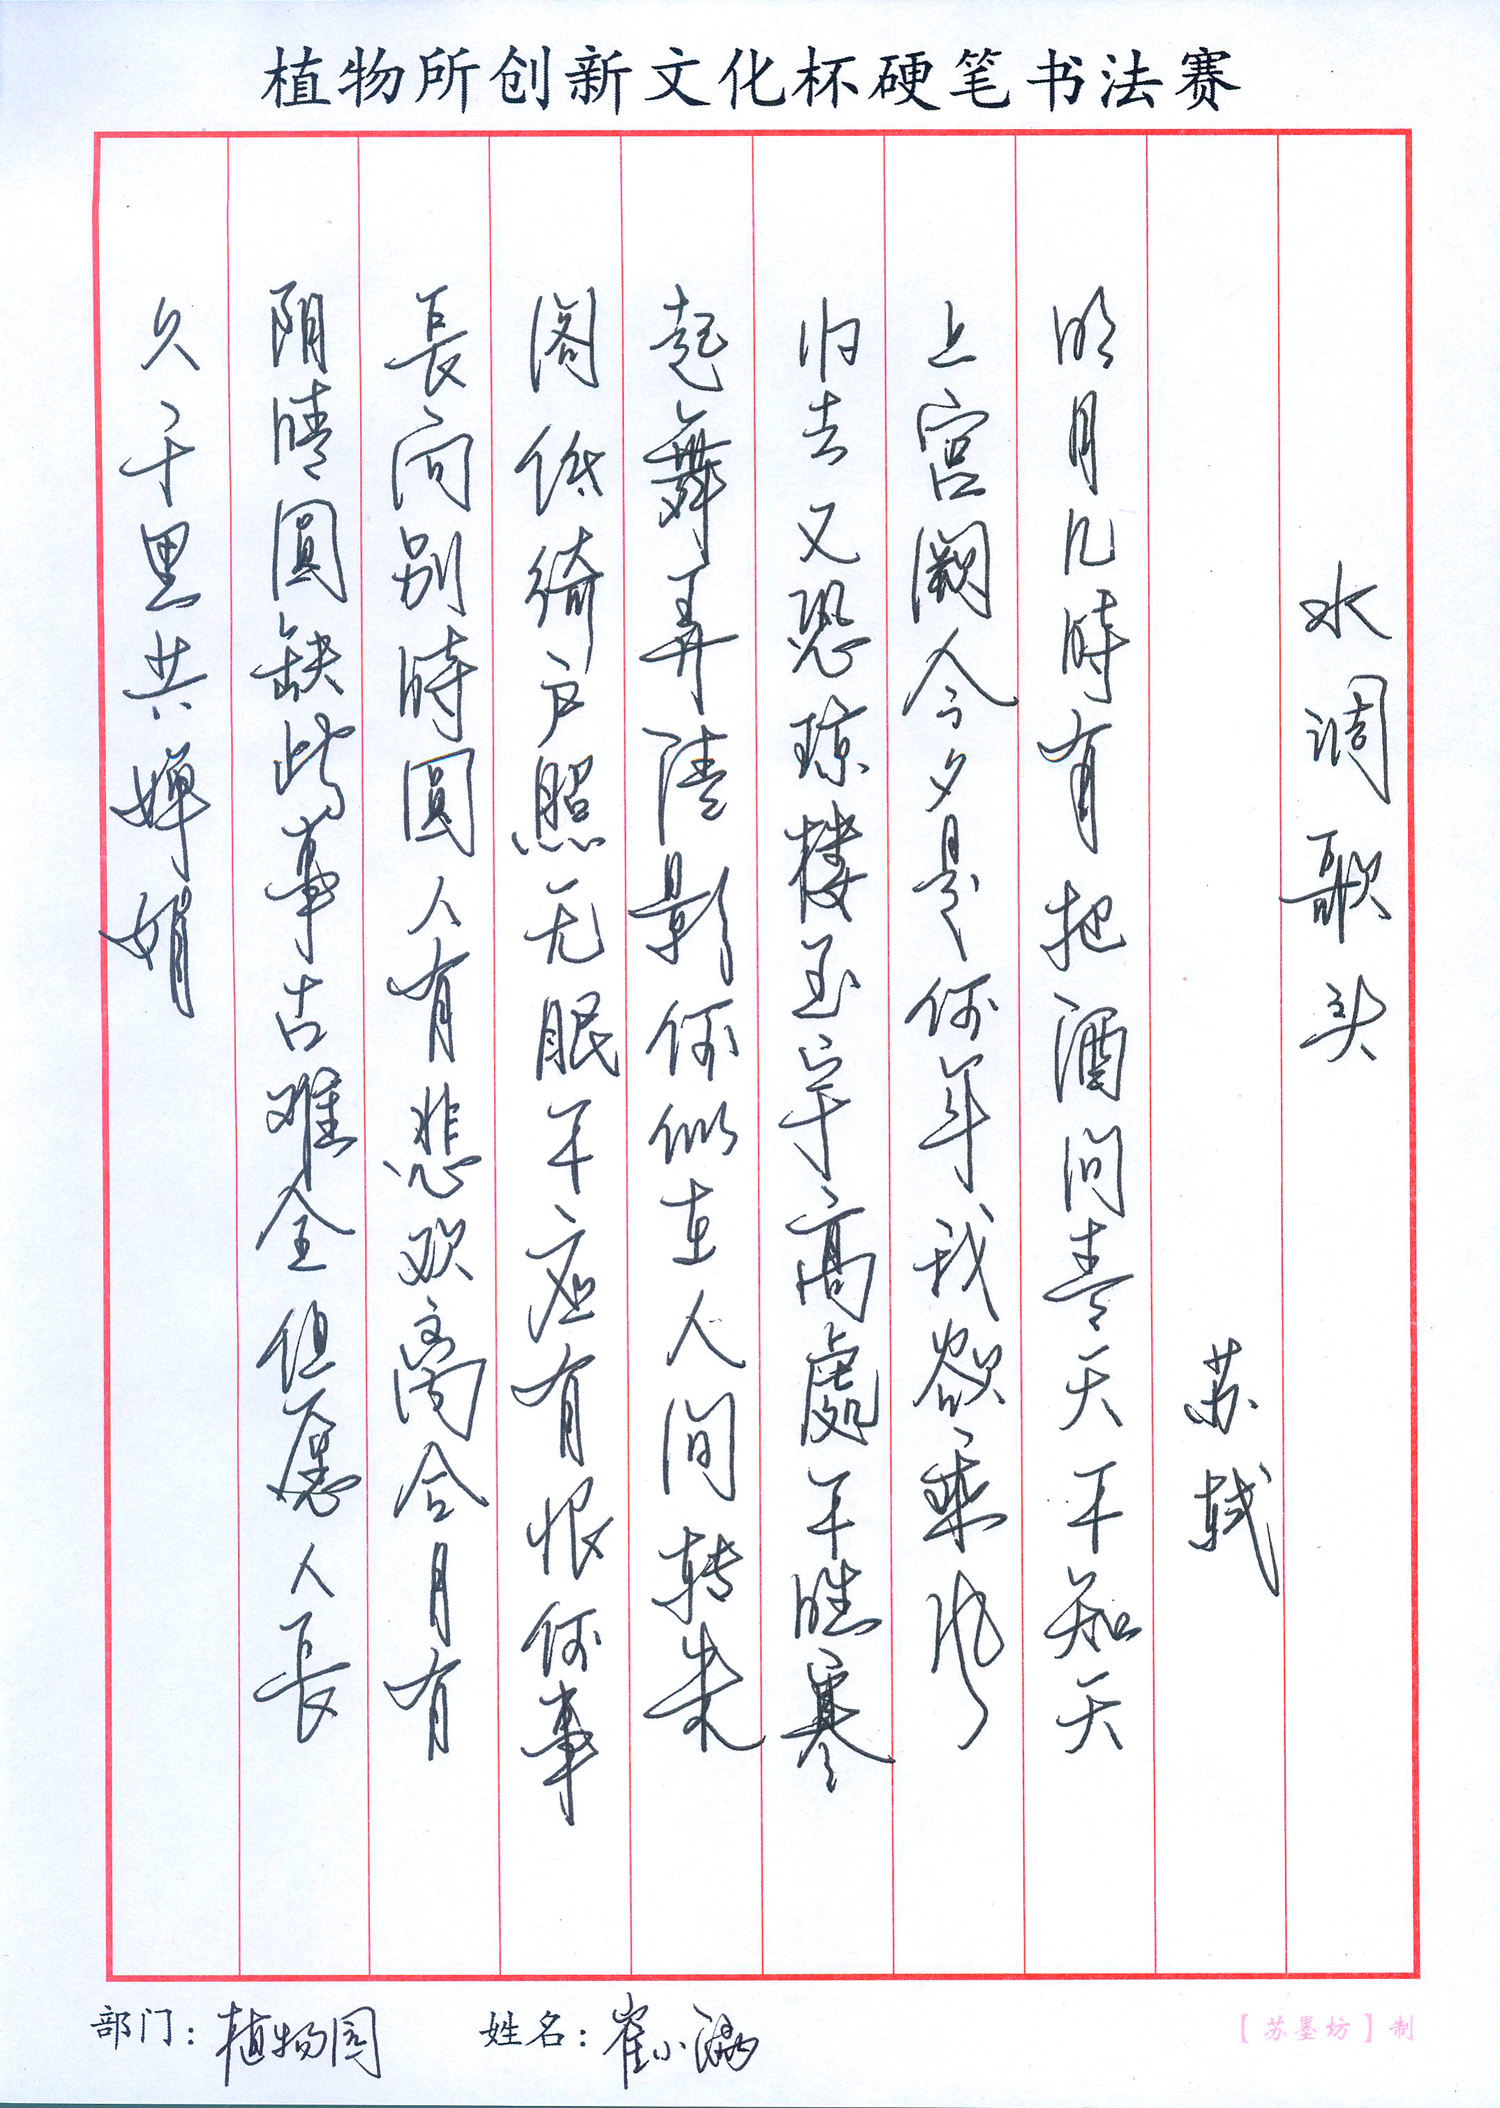 植物所创新文化杯硬笔书法赛
水调歌头
苏轼
明月几時有把酒问青天不知天
上宫阙今夕是何年我欲乘风
归去又恐琼楼玉宇高處不胜寒
起舞弄清影何似在人间转朱
阁低绮户照无眠不应有恨何事
長向别時圆人有悲欢离合月有
阴晴圆缺此事古难全但愿人長
久千里共婵娟
部门：植物园
姓名：崔小
【苏墨坊】制